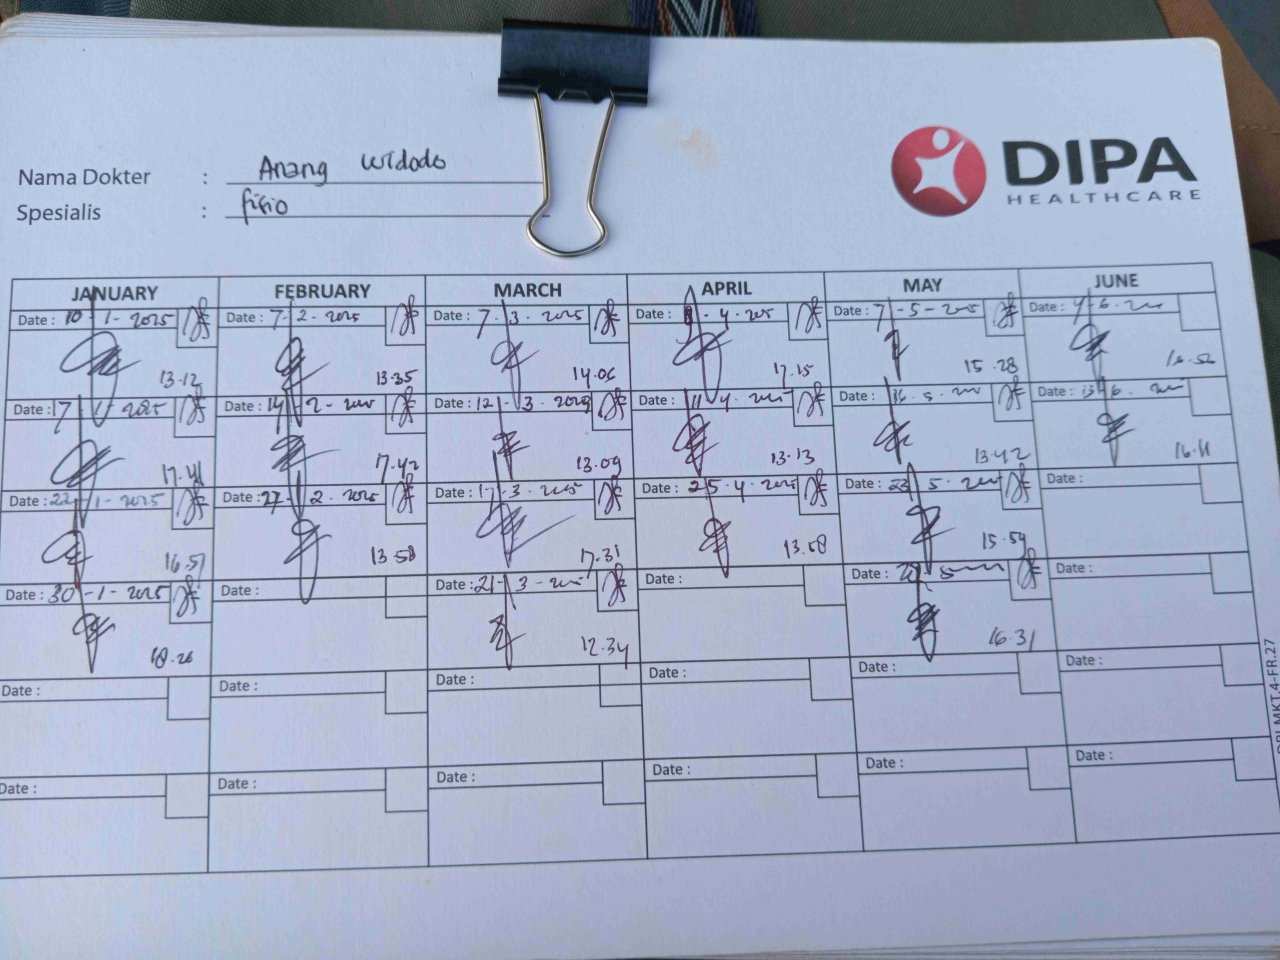 Nama Dokter : Anang Widodo
Spesialis : fisio
DIPA
HEALTHCARE
JANUARY FEBRUARY MARCH APRIL MAY JUNE
Date : 10-1-2025 Date : 7-2-2025 Date : 7-3-2025 Date : -4-2025 Date : 7-5-2025 Date :
13.12 13.35 14.06 17.15 15.28
Date : 17-1-2025 Date : 14-2-2025 Date : 12-3-2025 Date : 11-4-2025 Date : 16-5-2025 Date :
17.41 17.42 13.09 13.13 13.42 16.11
Date : 22-1-2025 Date : 27-2-2025 Date : -3-2025 Date : 25-4-2025 Date : 23-5-2025 Date :
16.57 13.58 17.31 13.58 15.59
Date : 30-1-2025 Date : Date : 21-3-2025 Date : Date : Date :
18.26 12.34 16.31
Date : Date : Date : Date : Date : Date :
Date : Date : Date : Date : Date : Date :
MKT.4-FR.27